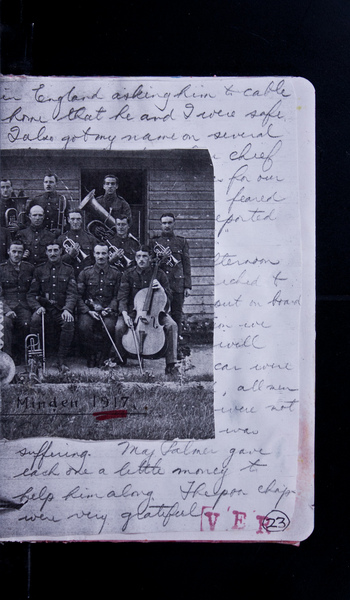 in England asking him to cable
home that he and I were safe.
I also got my name on several
chief
for our
feared
eported
ternoon
ched to
put on board
we
will
car were
, all men
were not
was
Minden 1917
suffering. Maj Palmer gave
each one a little money to
help him along. The poor chaps
were very grateful
VER
23